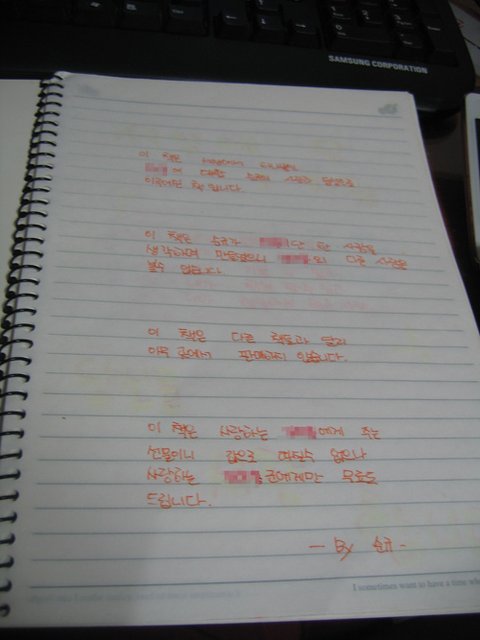 SAMSUNG CORPORATION
이 책은
에 대한 사랑과
이루어진 책 입니다.
이 책은 슌규가 단 한 사람을
생각하며 만들었으니 외 다른 사람은
볼수 없습니다.
이 책은 다른 책들과 달리
아무 곳에서 판매하지 않습니다.
이 책은 사랑하는 에게 주는
선물이니 값으로 따질수 없으나
사랑하는 군에게만 무료로
드립니다.
- By 슌규 -
I sometimes want to have a time